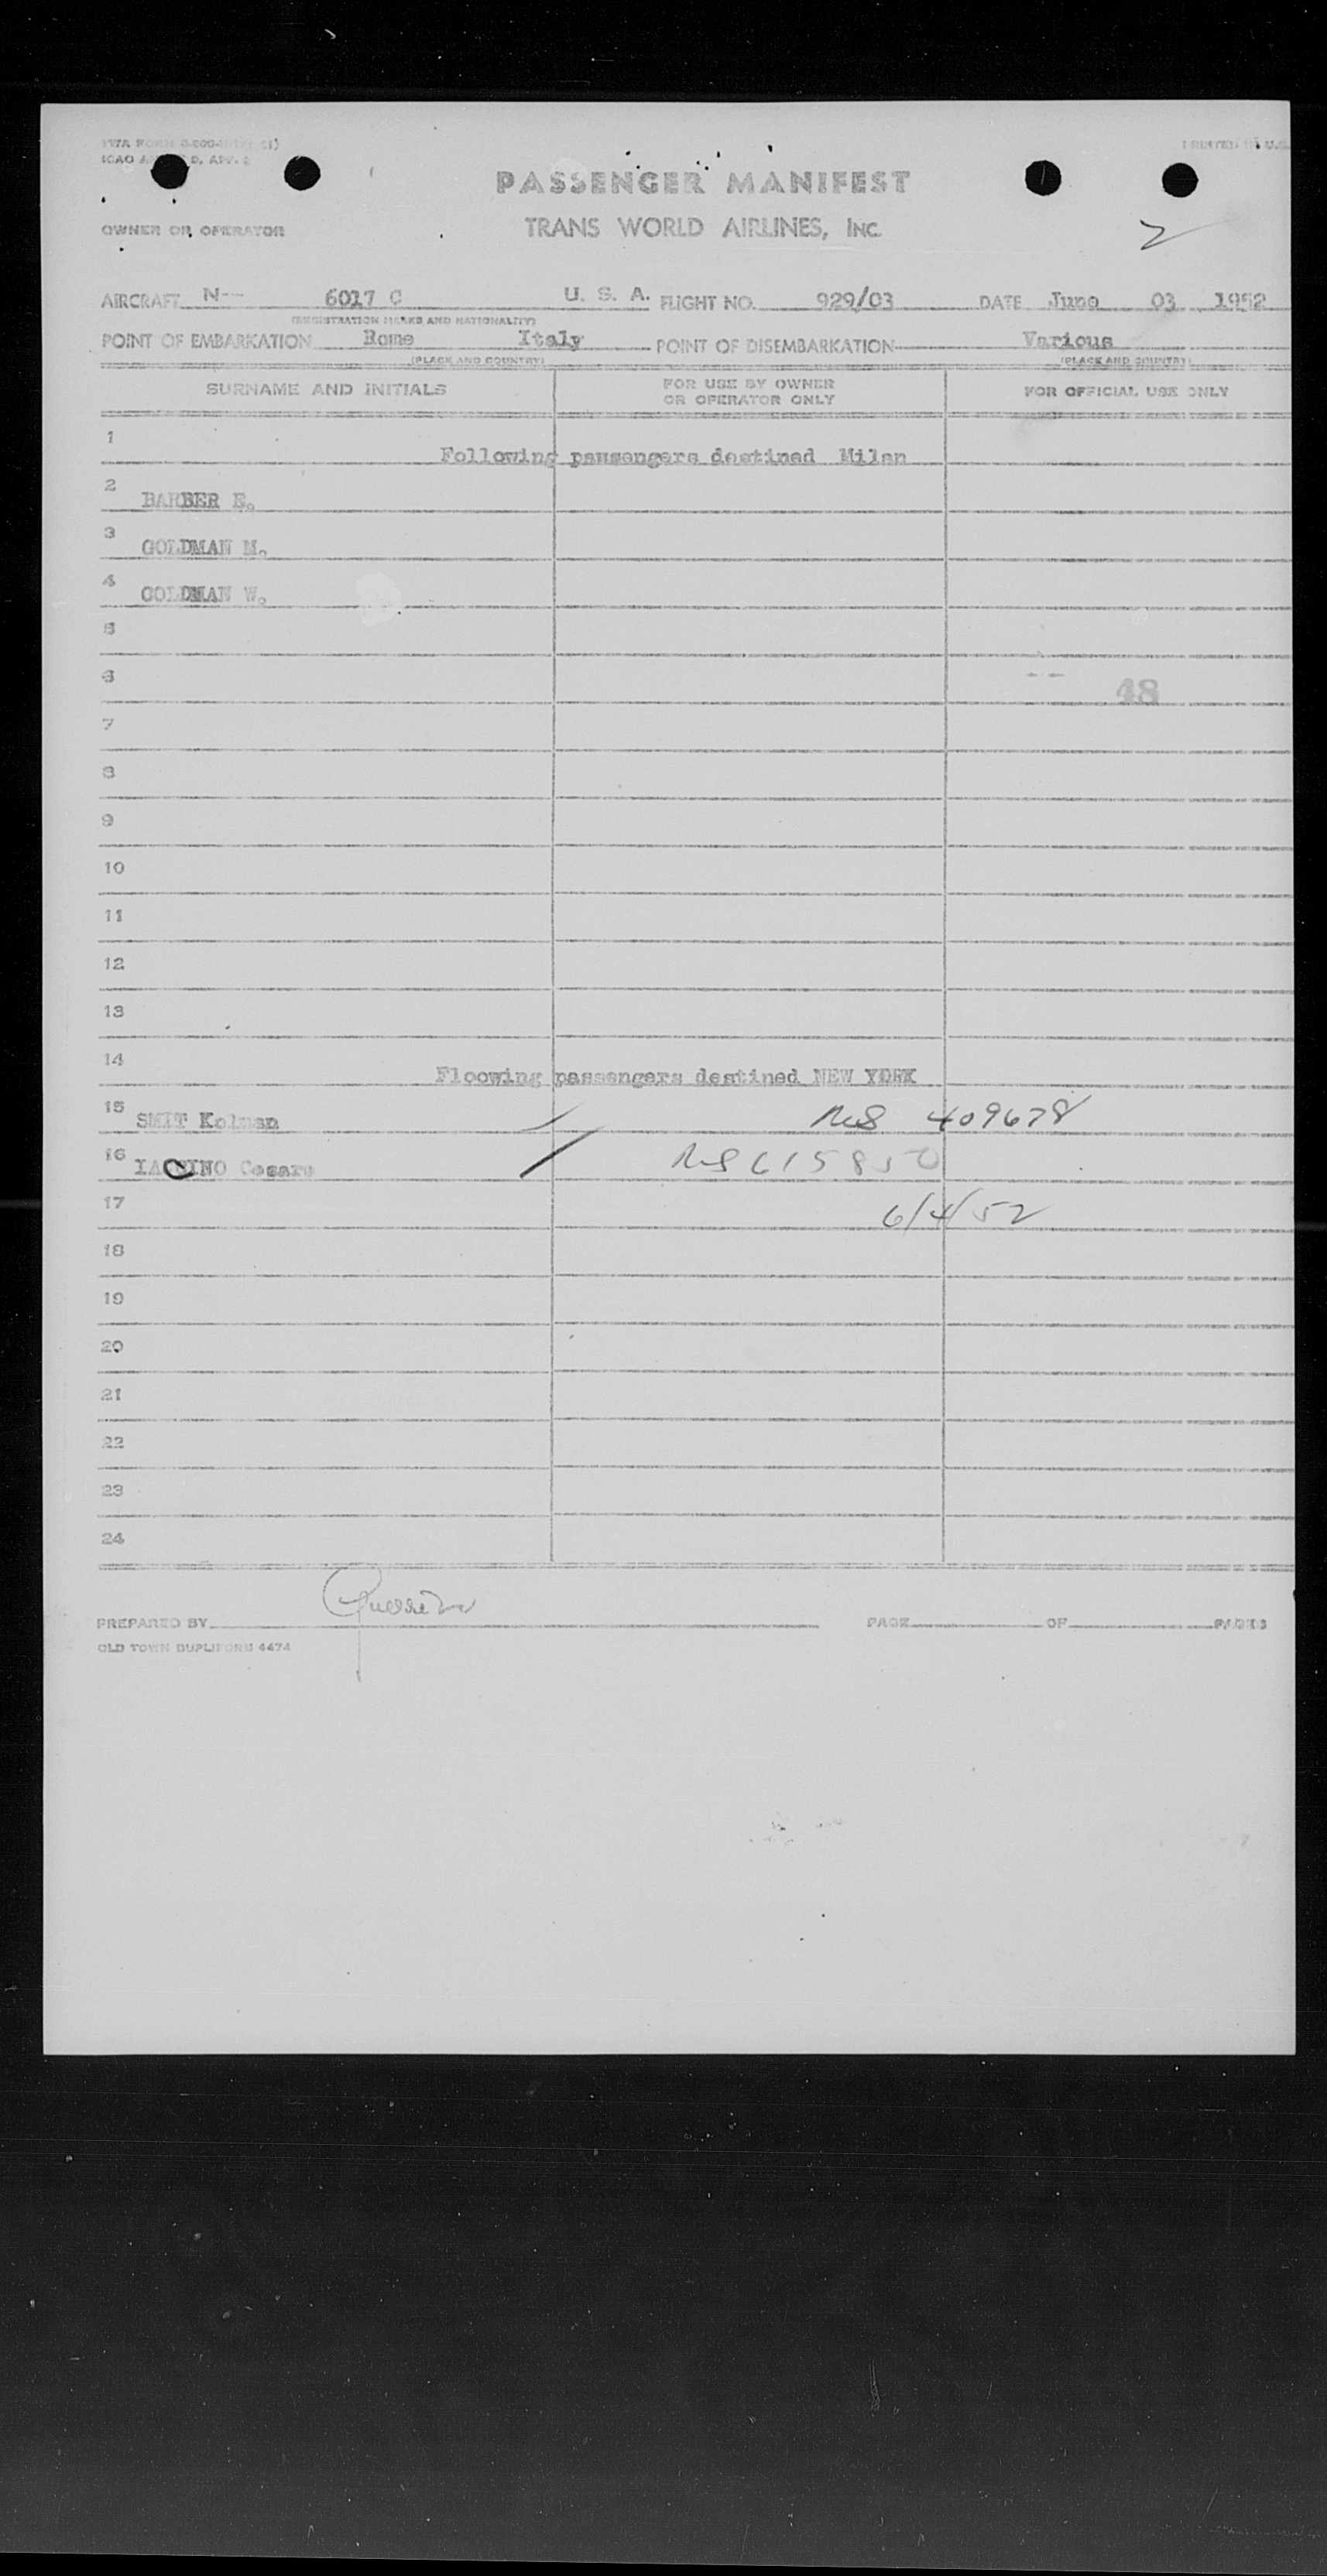 TWA FORM
ICAO
PRINTED IN U.S.
PASSENGER MANIFEST
OWNER OR OPERATOR
TRANS WORLD AIRLINES, INC.
2
AIRCRAFT N-- 6017 C U. S. A. FLIGHT NO. 929/03 DATE June 03 1952
(REGISTRATION MARKS AND NATIONALITY)
POINT OF EMBARKATION Rome Italy POINT OF DISEMBARKATION Various
(PLACE AND COUNTRY) (PLACE AND COUNTRY)
SURNAME AND INITIALS FOR USE BY OWNER OR OPERATOR ONLY FOR OFFICIAL USE ONLY
1 Following passengers destined Milan
2 BARBER E.
3 GOLDMAN M.
4 GOLDMAN W.
5
6 48
7
8
9
10
11
12
13
14 Floowing passengers destined NEW YORK
15 SMIT Kolman 409678
16 Cesare 615850
17 6/4/52
18
19
20
21
22
23
24
PREPARED BY PAGE OF PAGES
OLD TOWN DUPLIFORM 4474